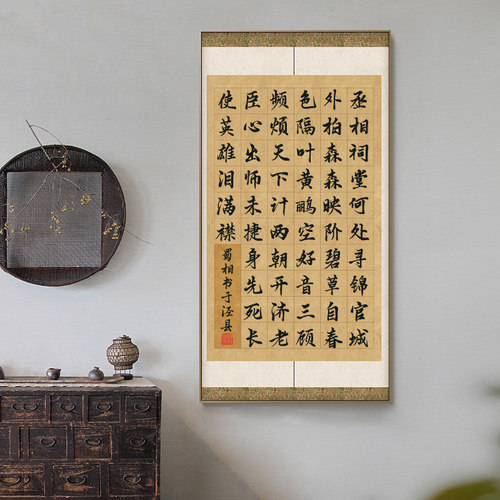 丞相祠堂何处寻锦官城
外柏森森映阶碧草自春
色隔叶黄鹂空好音三顾
频烦天下计两朝开济老
臣心出师未捷身先死长
使英雄泪满襟
蜀相书于泾县